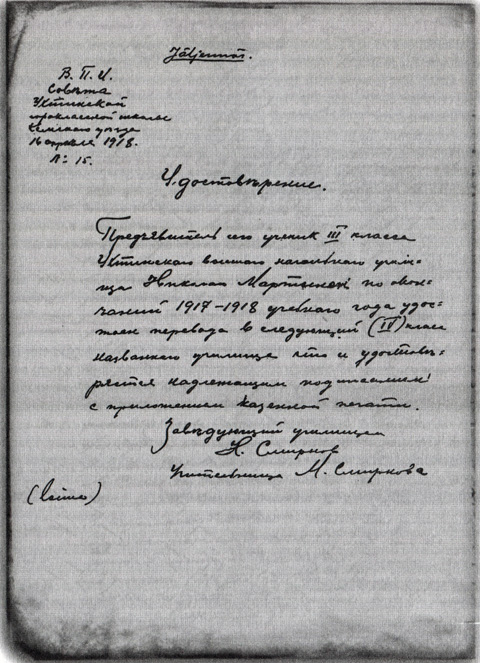 Jäljennös.
В. П. И.
Совѣта
Ухтинской
школы
Кемского уѣзда
16 апреля 1918.
№ 15.
Удостовѣрение.
Предъявитель сего ученик III класса
Ухтинского высшего начального учили-
ща Николай по окон-
чании 1917–1918 учебного года удос-
тоен перевода в следующий (IV) класс
названного училища что и удостовѣ-
ряется надлежащим подписанием
с приложением казенной печати.
Завѣдующий училищем
Н. Смирнов
Учительница М. Смирнова
(leima)